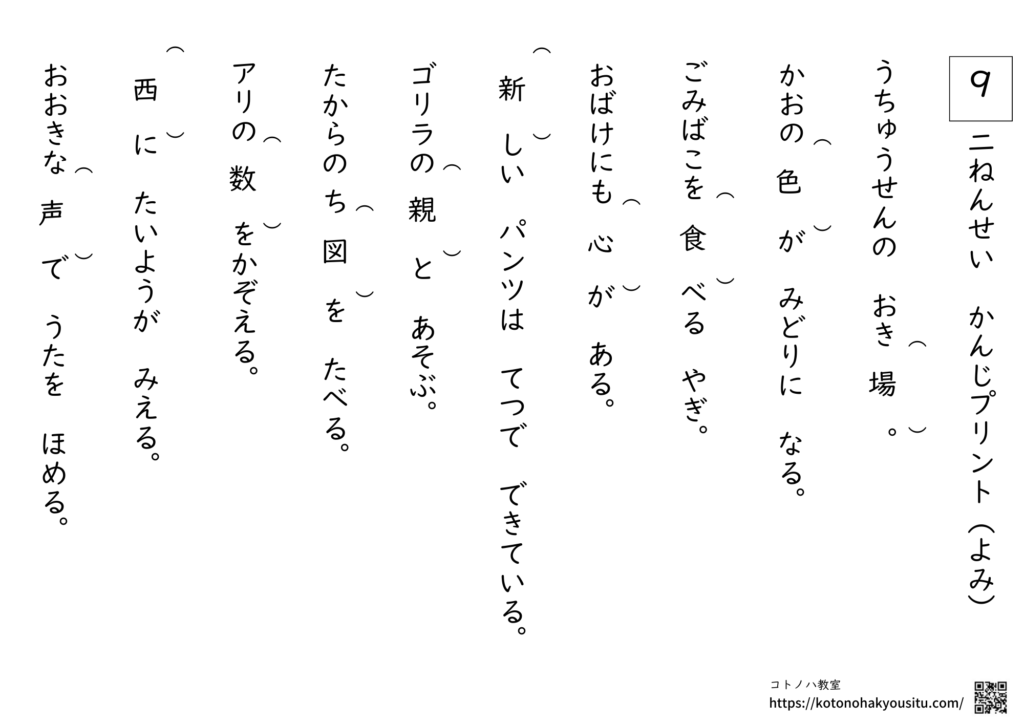 9 二ねんせい かんじプリント（よみ）
うちゅうせんの おき場（ ）。
かおの色（ ）が みどりに なる。
ごみばこを食（ ）べる やぎ。
おばけにも心（ ）が ある。
新（ ）しい パンツは てつで できている。
ゴリラの親（ ）と あそぶ。
たからのち図（ ）を たべる。
アリの数（ ）をかぞえる。
西（ ）に たいようが みえる。
おおきな声（ ）で うたを ほめる。
コトノハ教室
https://kotonohakyousitu.com/